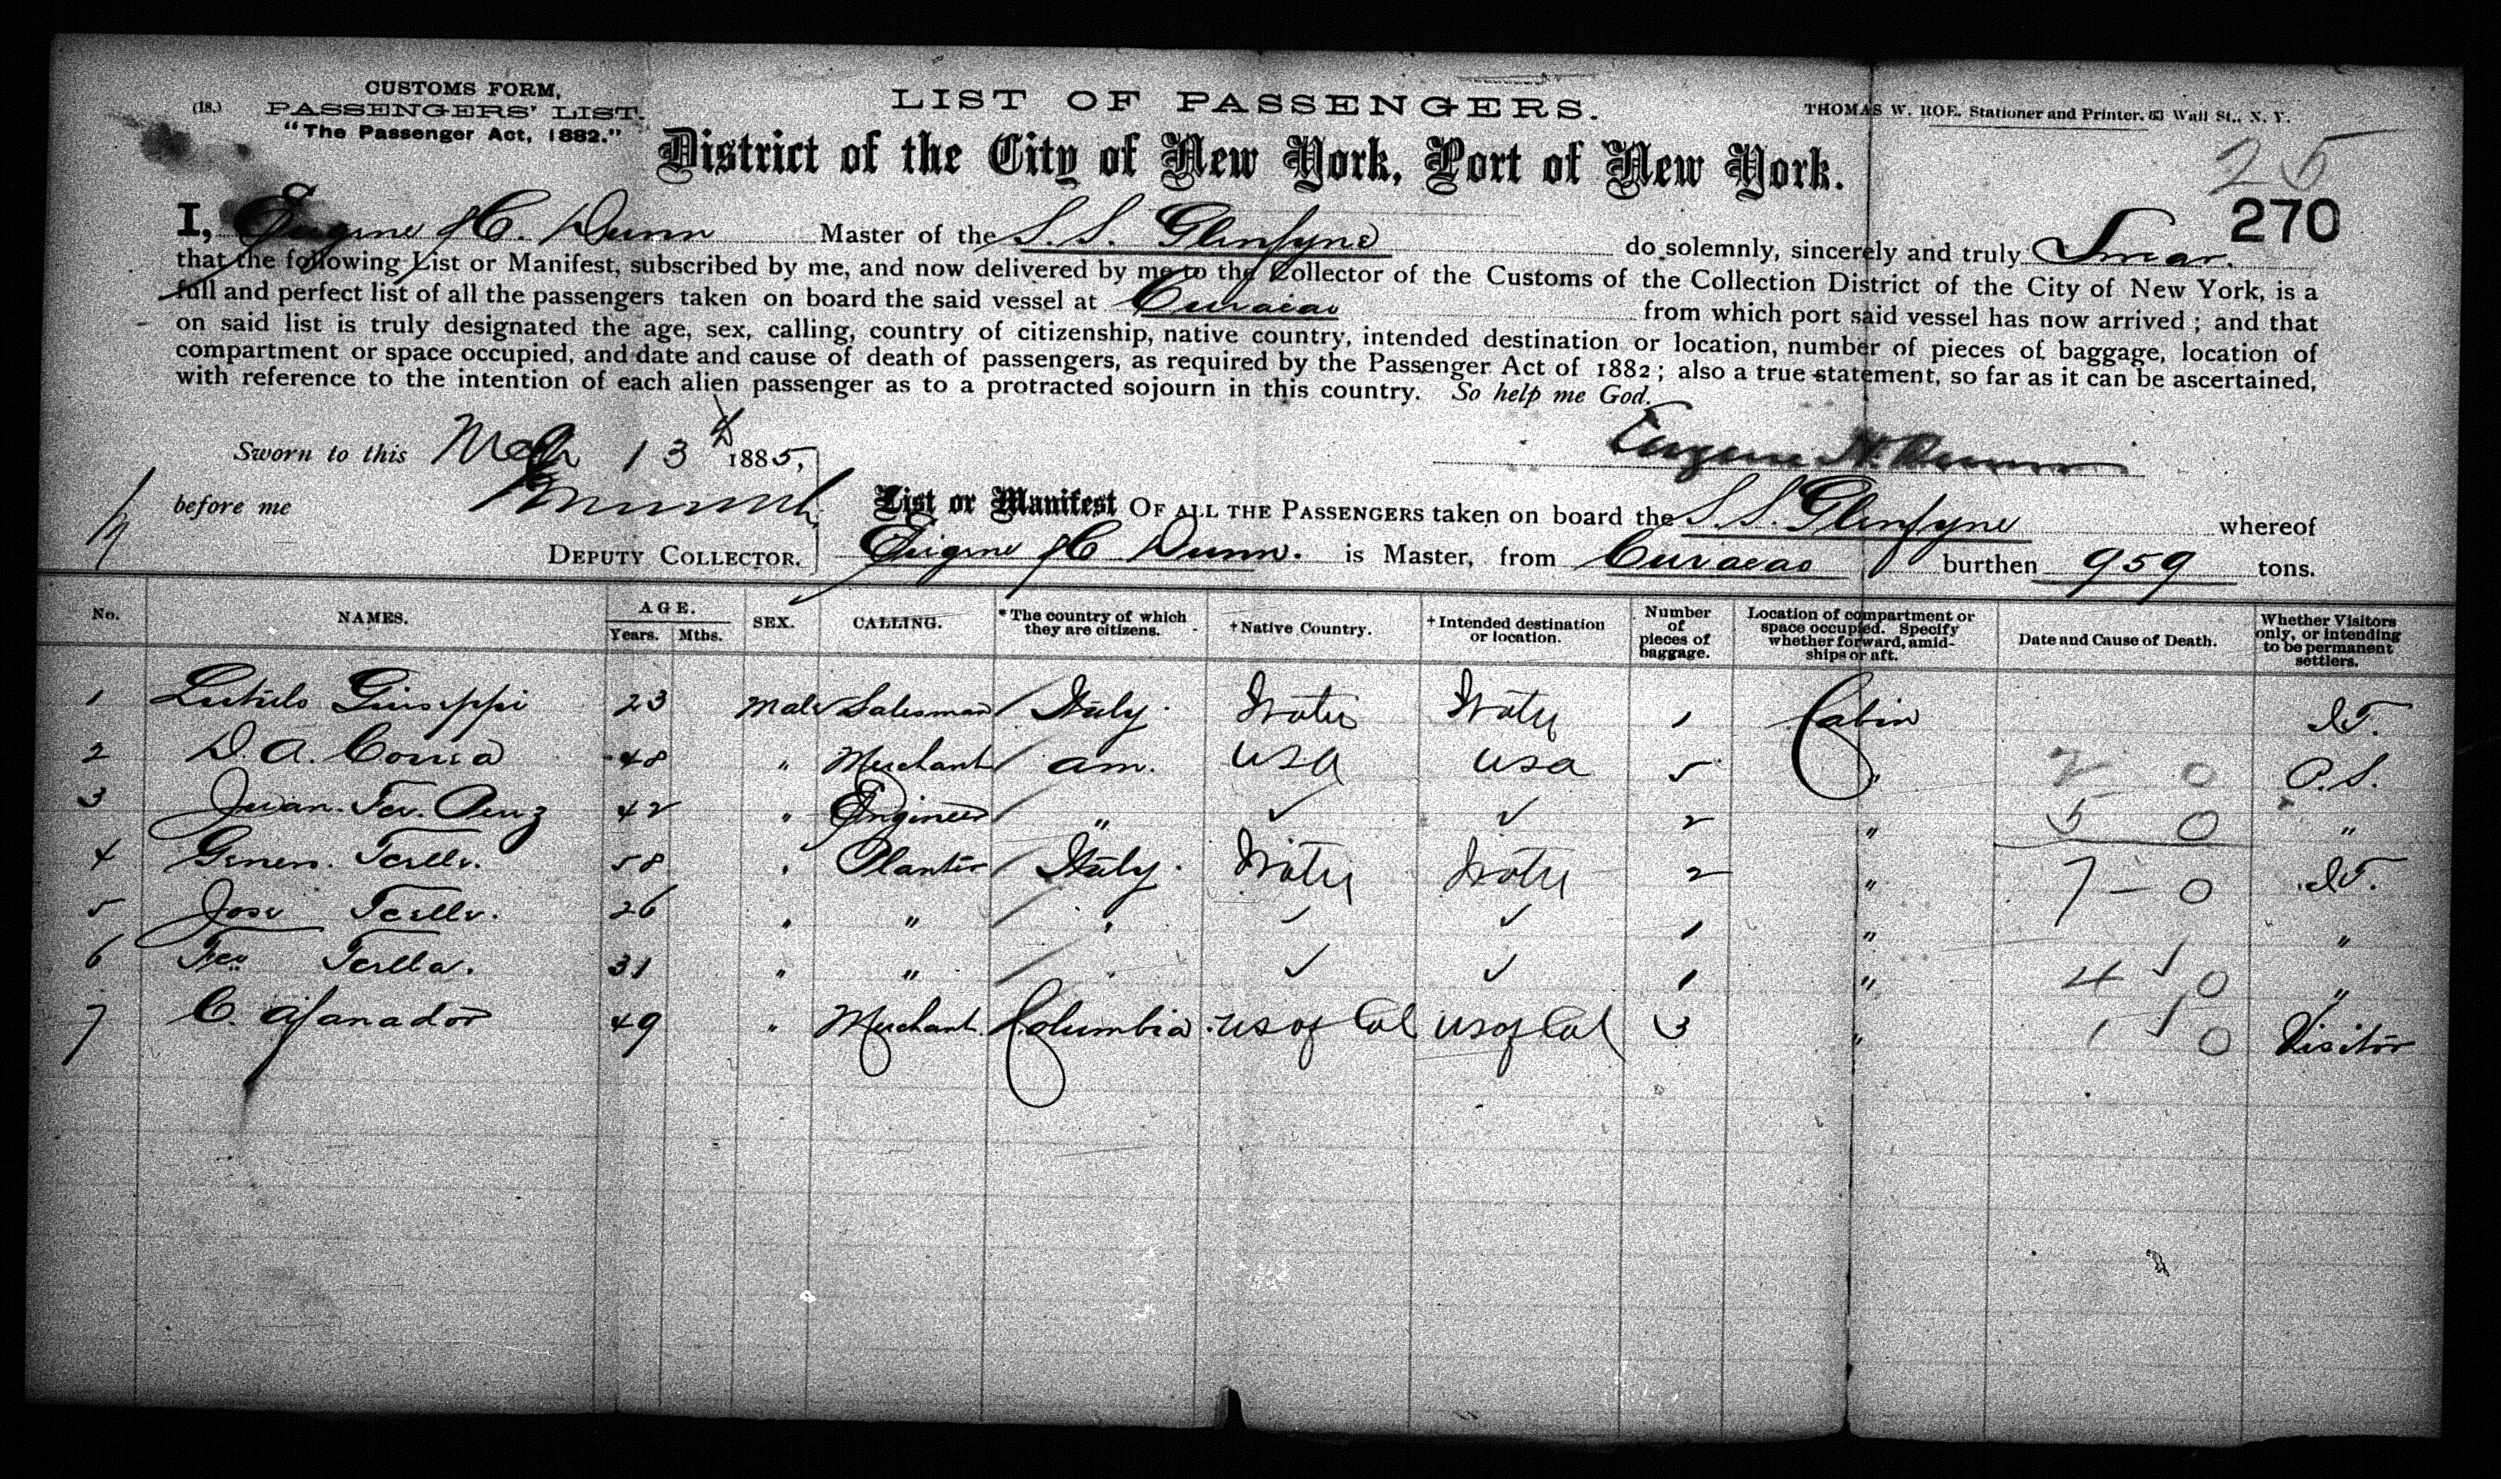 CUSTOMS FORM,
(18.) PASSENGERS' LIST.
"The Passenger Act, 1882."
LIST OF PASSENGERS.
THOMAS W. ROE, Stationer and Printer, 83 Wall St., N. Y.
District of the City of New York, Port of New York.
25
270
I, Eugene H. Dunn Master of the S.S. Glenfyne do solemnly, sincerely and truly Swear
that the following List or Manifest, subscribed by me, and now delivered by me to the Collector of the Customs of the Collection District of the City of New York, is a
full and perfect list of all the passengers taken on board the said vessel at Curacao from which port said vessel has now arrived; and that
on said list is truly designated the age, sex, calling, country of citizenship, native country, intended destination or location, number of pieces of baggage, location of
compartment or space occupied, and date and cause of death of passengers, as required by the Passenger Act of 1882; also a true statement, so far as it can be ascertained,
with reference to the intention of each alien passenger as to a protracted sojourn in this country. So help me God.
Sworn to this Mch 13th 1885,
Eugene H. Dunn
before me
DEPUTY COLLECTOR.
List or Manifest OF ALL THE PASSENGERS taken on board the S.S. Glenfyne whereof
Eugene H Dunn. is Master, from Curacao burthen 959 tons.
No. NAMES. AGE. Years. Mths. SEX. CALLING. *The country of which they are citizens. †Native Country. †Intended destination or location. Number of pieces of baggage. Location of compartment or space occupied. Specify whether forward, amidships or aft. Date and Cause of Death. Whether Visitors only, or intending to be permanent settlers.
1 Giuseppi 23 Male Salesman Italy 1 Cabin
2 D. A. 48 " Merchant Am. USA USA 5 " 2 0 P.S.
3 Juan 42 " Engineer " ✓ ✓ 2 " 5 0 "
4 58 " Planter Italy 2 " 7 - 0
5 Jose 26 " " " ✓ ✓ 1 " "
6 Fco 31 " " " ✓ ✓ 1 " 4 0 "
7 C. Afanador 49 " Merchant. Columbia US of Col US of Col 3 " 1 0 Visitor